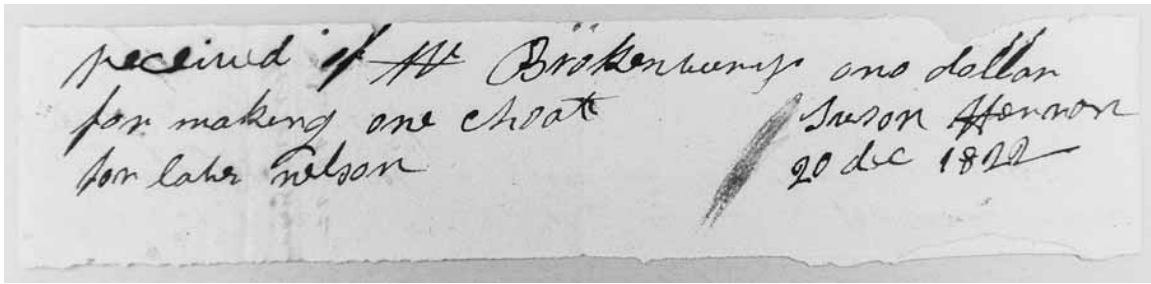 received of Mr Brökenburrough one dollar
for making one choat
for late nelson
Suson Hernnon
20 dec 1822